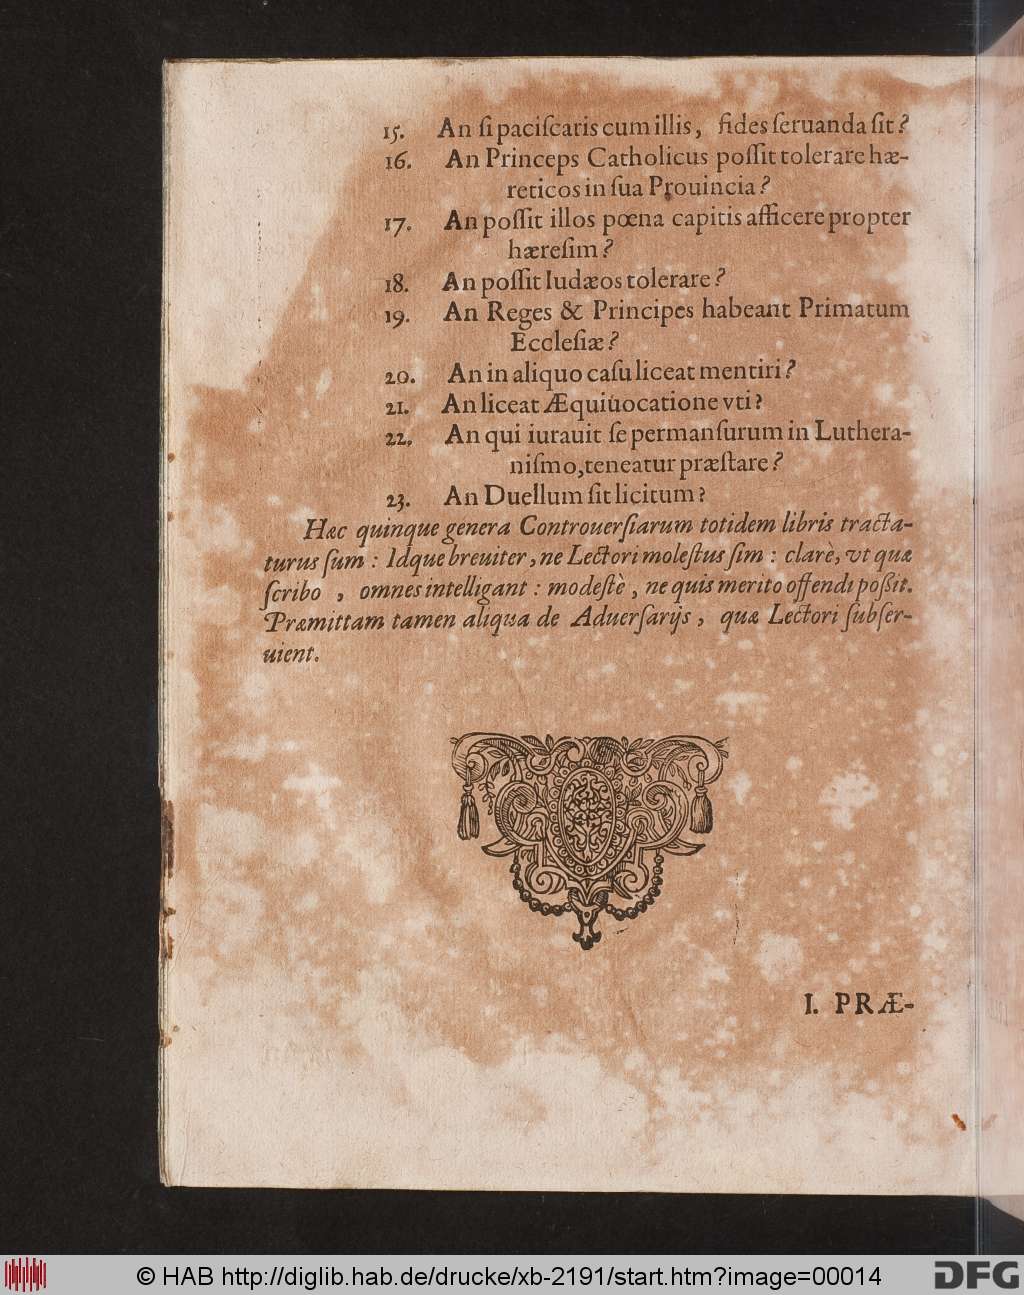 15. An ſi paciſcaris cum illis, fides ſeruanda ſit?
16. An Princeps Catholicus poſſit tolerare hæ-
reticos in ſua Prouincia?
17. An poſſit illos pœna capitis afficere propter
hæreſim?
18. An poſſit Iudæos tolerare?
19. An Reges & Principes habeant Primatum
Eccleſiæ?
20. An in aliquo caſu liceat mentiri?
21. An liceat Æquiuocatione vti?
22. An qui iurauit ſe permanſurum in Luthera-
niſmo, teneatur præſtare?
23. An Duellum ſit licitum?
Hæc quinque genera Controuerſiarum totidem libris tracta-
turus ſum: Idque breuiter, ne Lectori moleſtus ſim: clarè, vt quæ
ſcribo, omnes intelligant: modeſtè, ne quis merito offendi poßit.
Præmittam tamen aliqua de Aduerſarijs, quæ Lectori ſubſer-
uient.
I. PRÆ-
© HAB http://diglib.hab.de/drucke/xb-2191/start.htm?image=00014
DFG